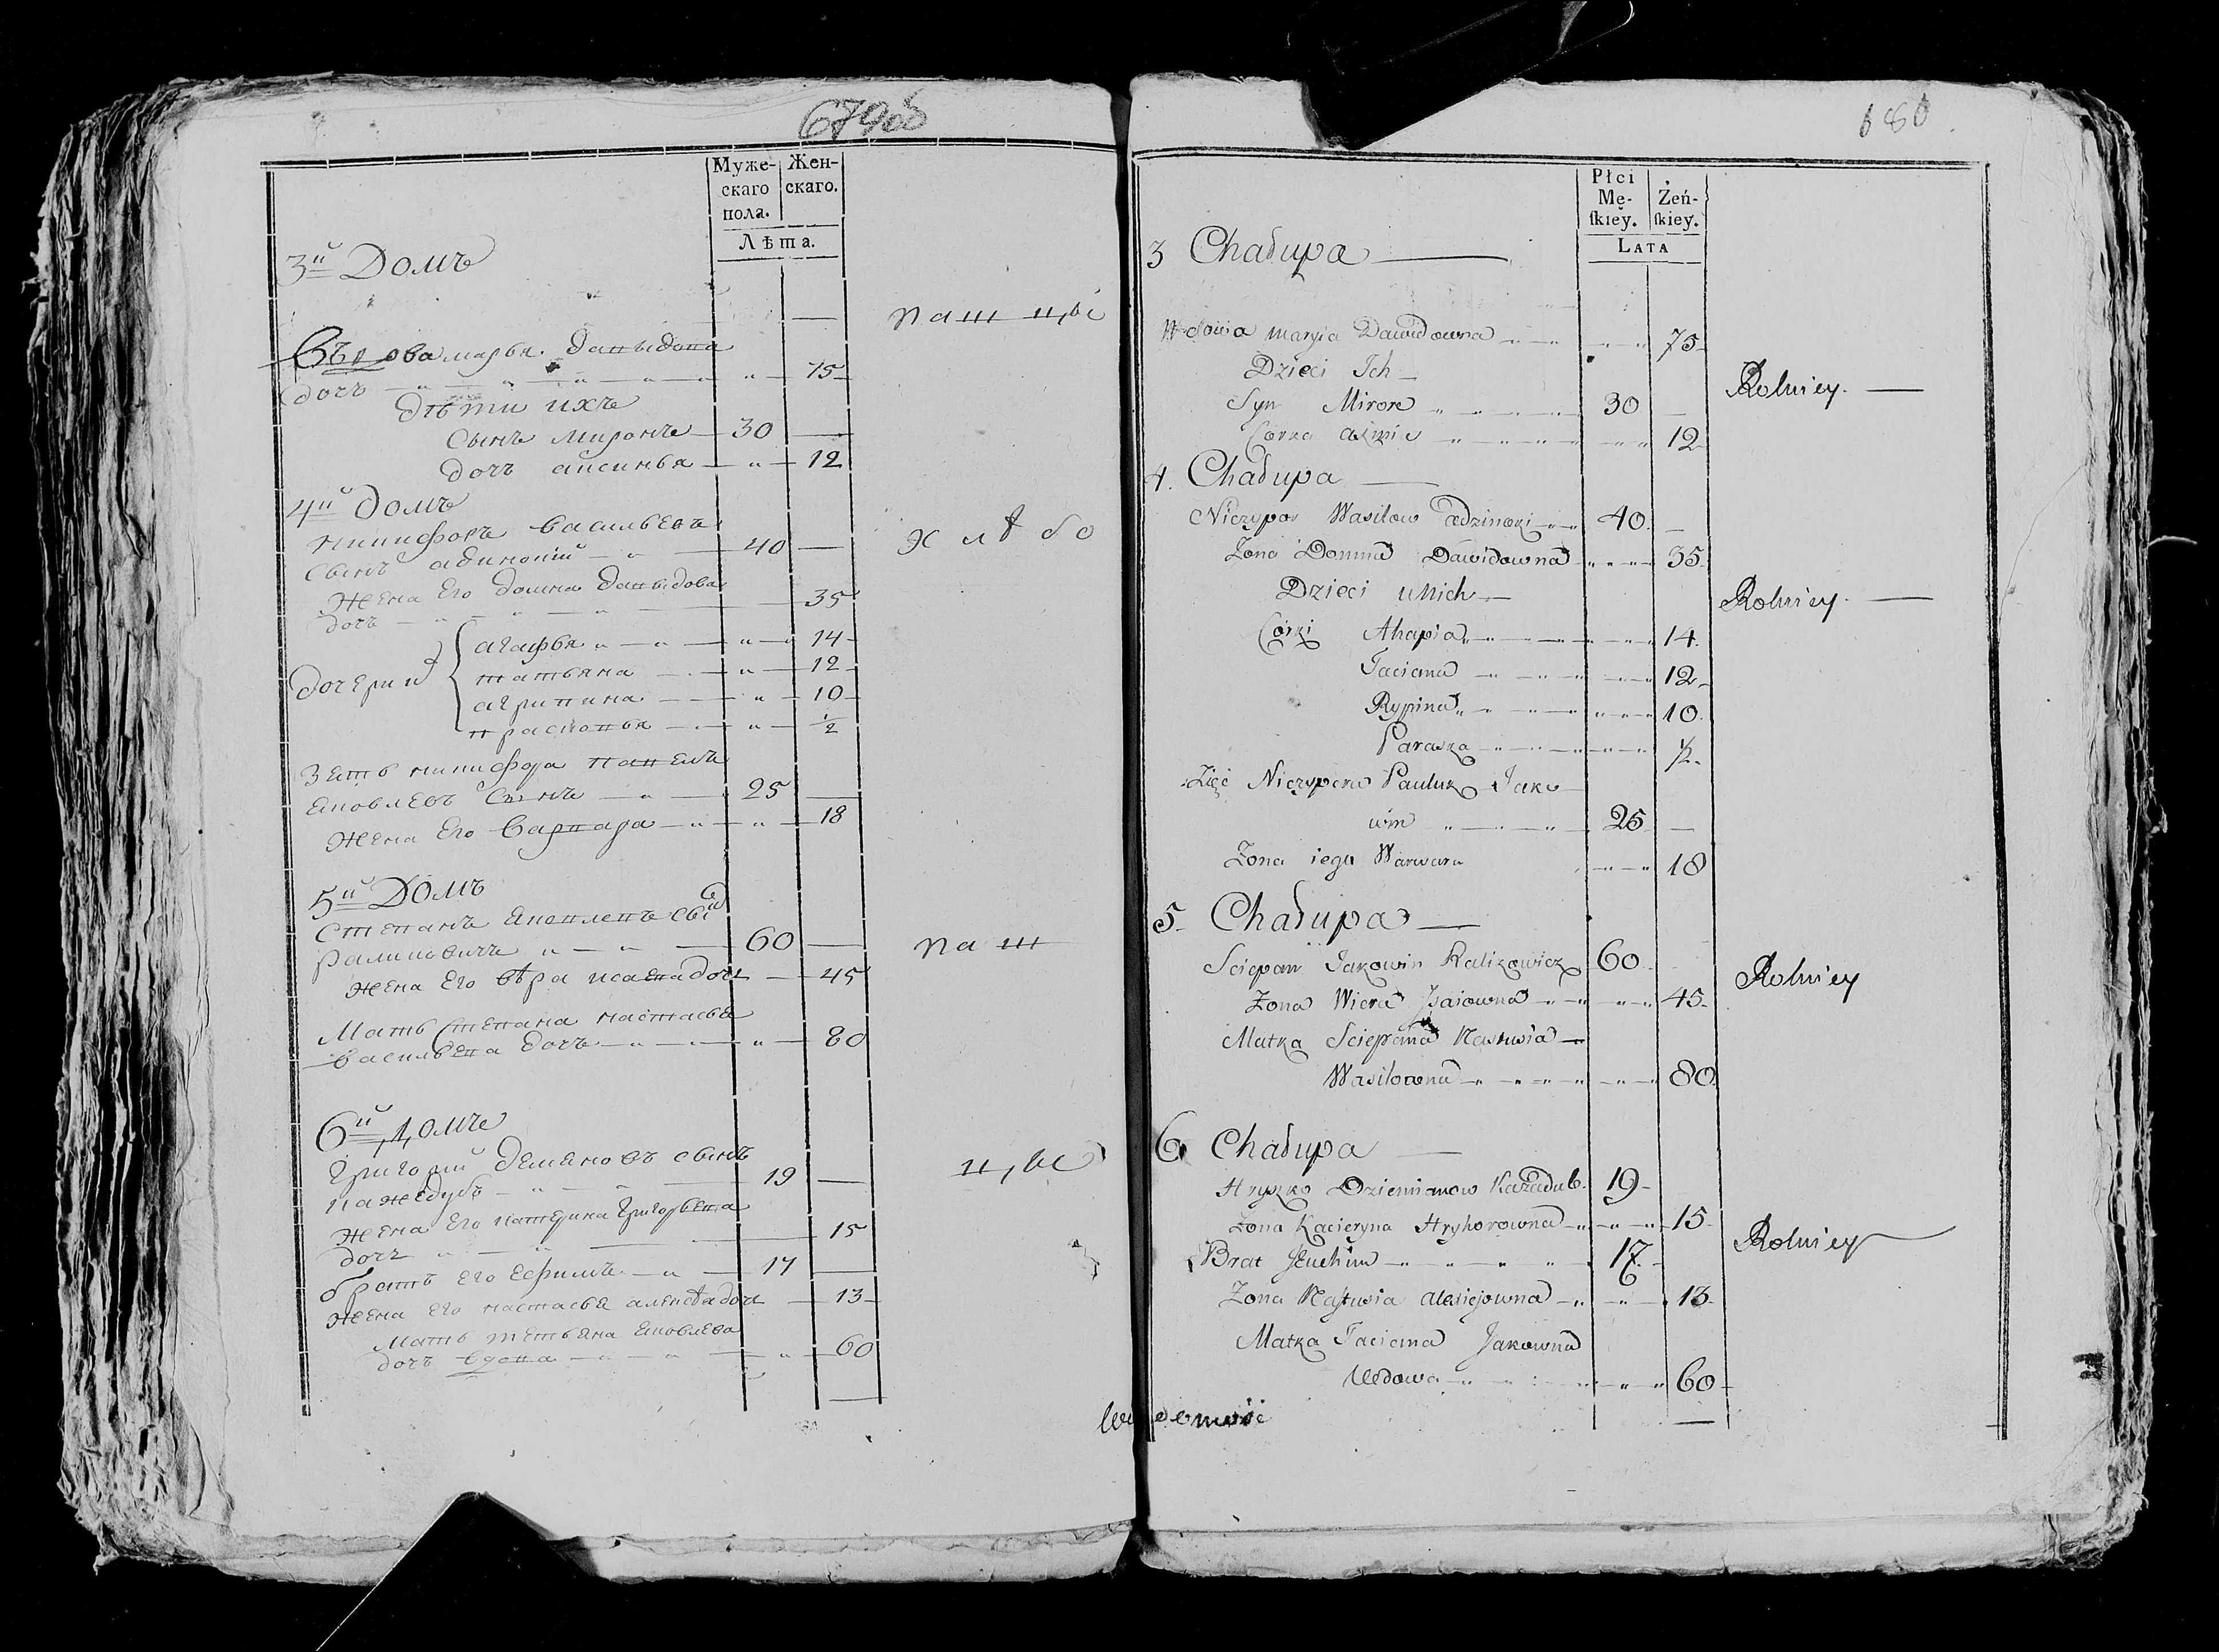 679об
Муже-
скаго
пола.
Жен-
скаго.
Лѣта.
3й Домъ
пашцы
Вдова марья Давыдова
дочъ 75
дѣти ихъ
Сынъ Миронъ 30
дочъ аксинья 12
4й домъ
никифоръ васильевъ
сынъ 40
хлѣбо
Жена Его домна Давыдова
дочъ 35
дочери
агафья 14
татьяна 12
агрипина 10
прасковья 1/2
Зять никифора павелъ
яковлевъ сынъ 25
Жена Его Варвара 18
5й Домъ
Степанъ яковлевъ сынъ
раликовичъ 60
паш
жена Его вѣра исаева доч 45
Мать Степана настасья
васильева дочъ 80
6й домъ
григорий демяновъ сынъ
кажедубъ 19
цы
жена Его катерина григорьева
дочъ 15
братъ его Ефимъ 17
жена его настасья алексѣа доч 13
мать тетьяна яковлева
дочъ вдова 60
680
Płci
Mę-
skiey.
Żeń-
skiey.
LATA
3 Chałupa
Wdowa Maryia Dawidowna 75
Dzieci Ich
Rolniey
Syn Miron 30
Corka 12
4. Chałupa
Niczypor Wasilow 40
Żona Domna Dawidowna 35
Dzieci u Nich
Rolniey
Córki Ahapia 14
Taciana 12
Rypina 10
Paraska 1/2
Zięć Niczypora Pauluk Jako
win 25
Żona iego Warwara 18
5 Chałupa
Sciepan Jakowin Ralikowicz 60
Rolniey
Żona Wiera Isaiowna 45
Matka Sciepana Nastusia
Wasilowna 80
6 Chałupa
Hryszko Dziemianow Każadub 19
Żona Kacieryna Hryhorowna 15
Rolniey
Brat Jeuchim 17
Żona Nastusia Alexiejowna 13
Matka Taciana Jakowna
Wdowa 60